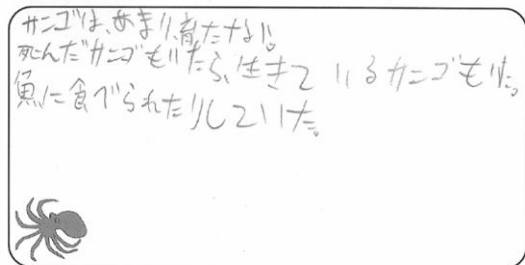 サンゴは、あまり、育たない。
死んだサンゴもいたら、生きているサンゴもいた。
魚に食べられたりしていた。